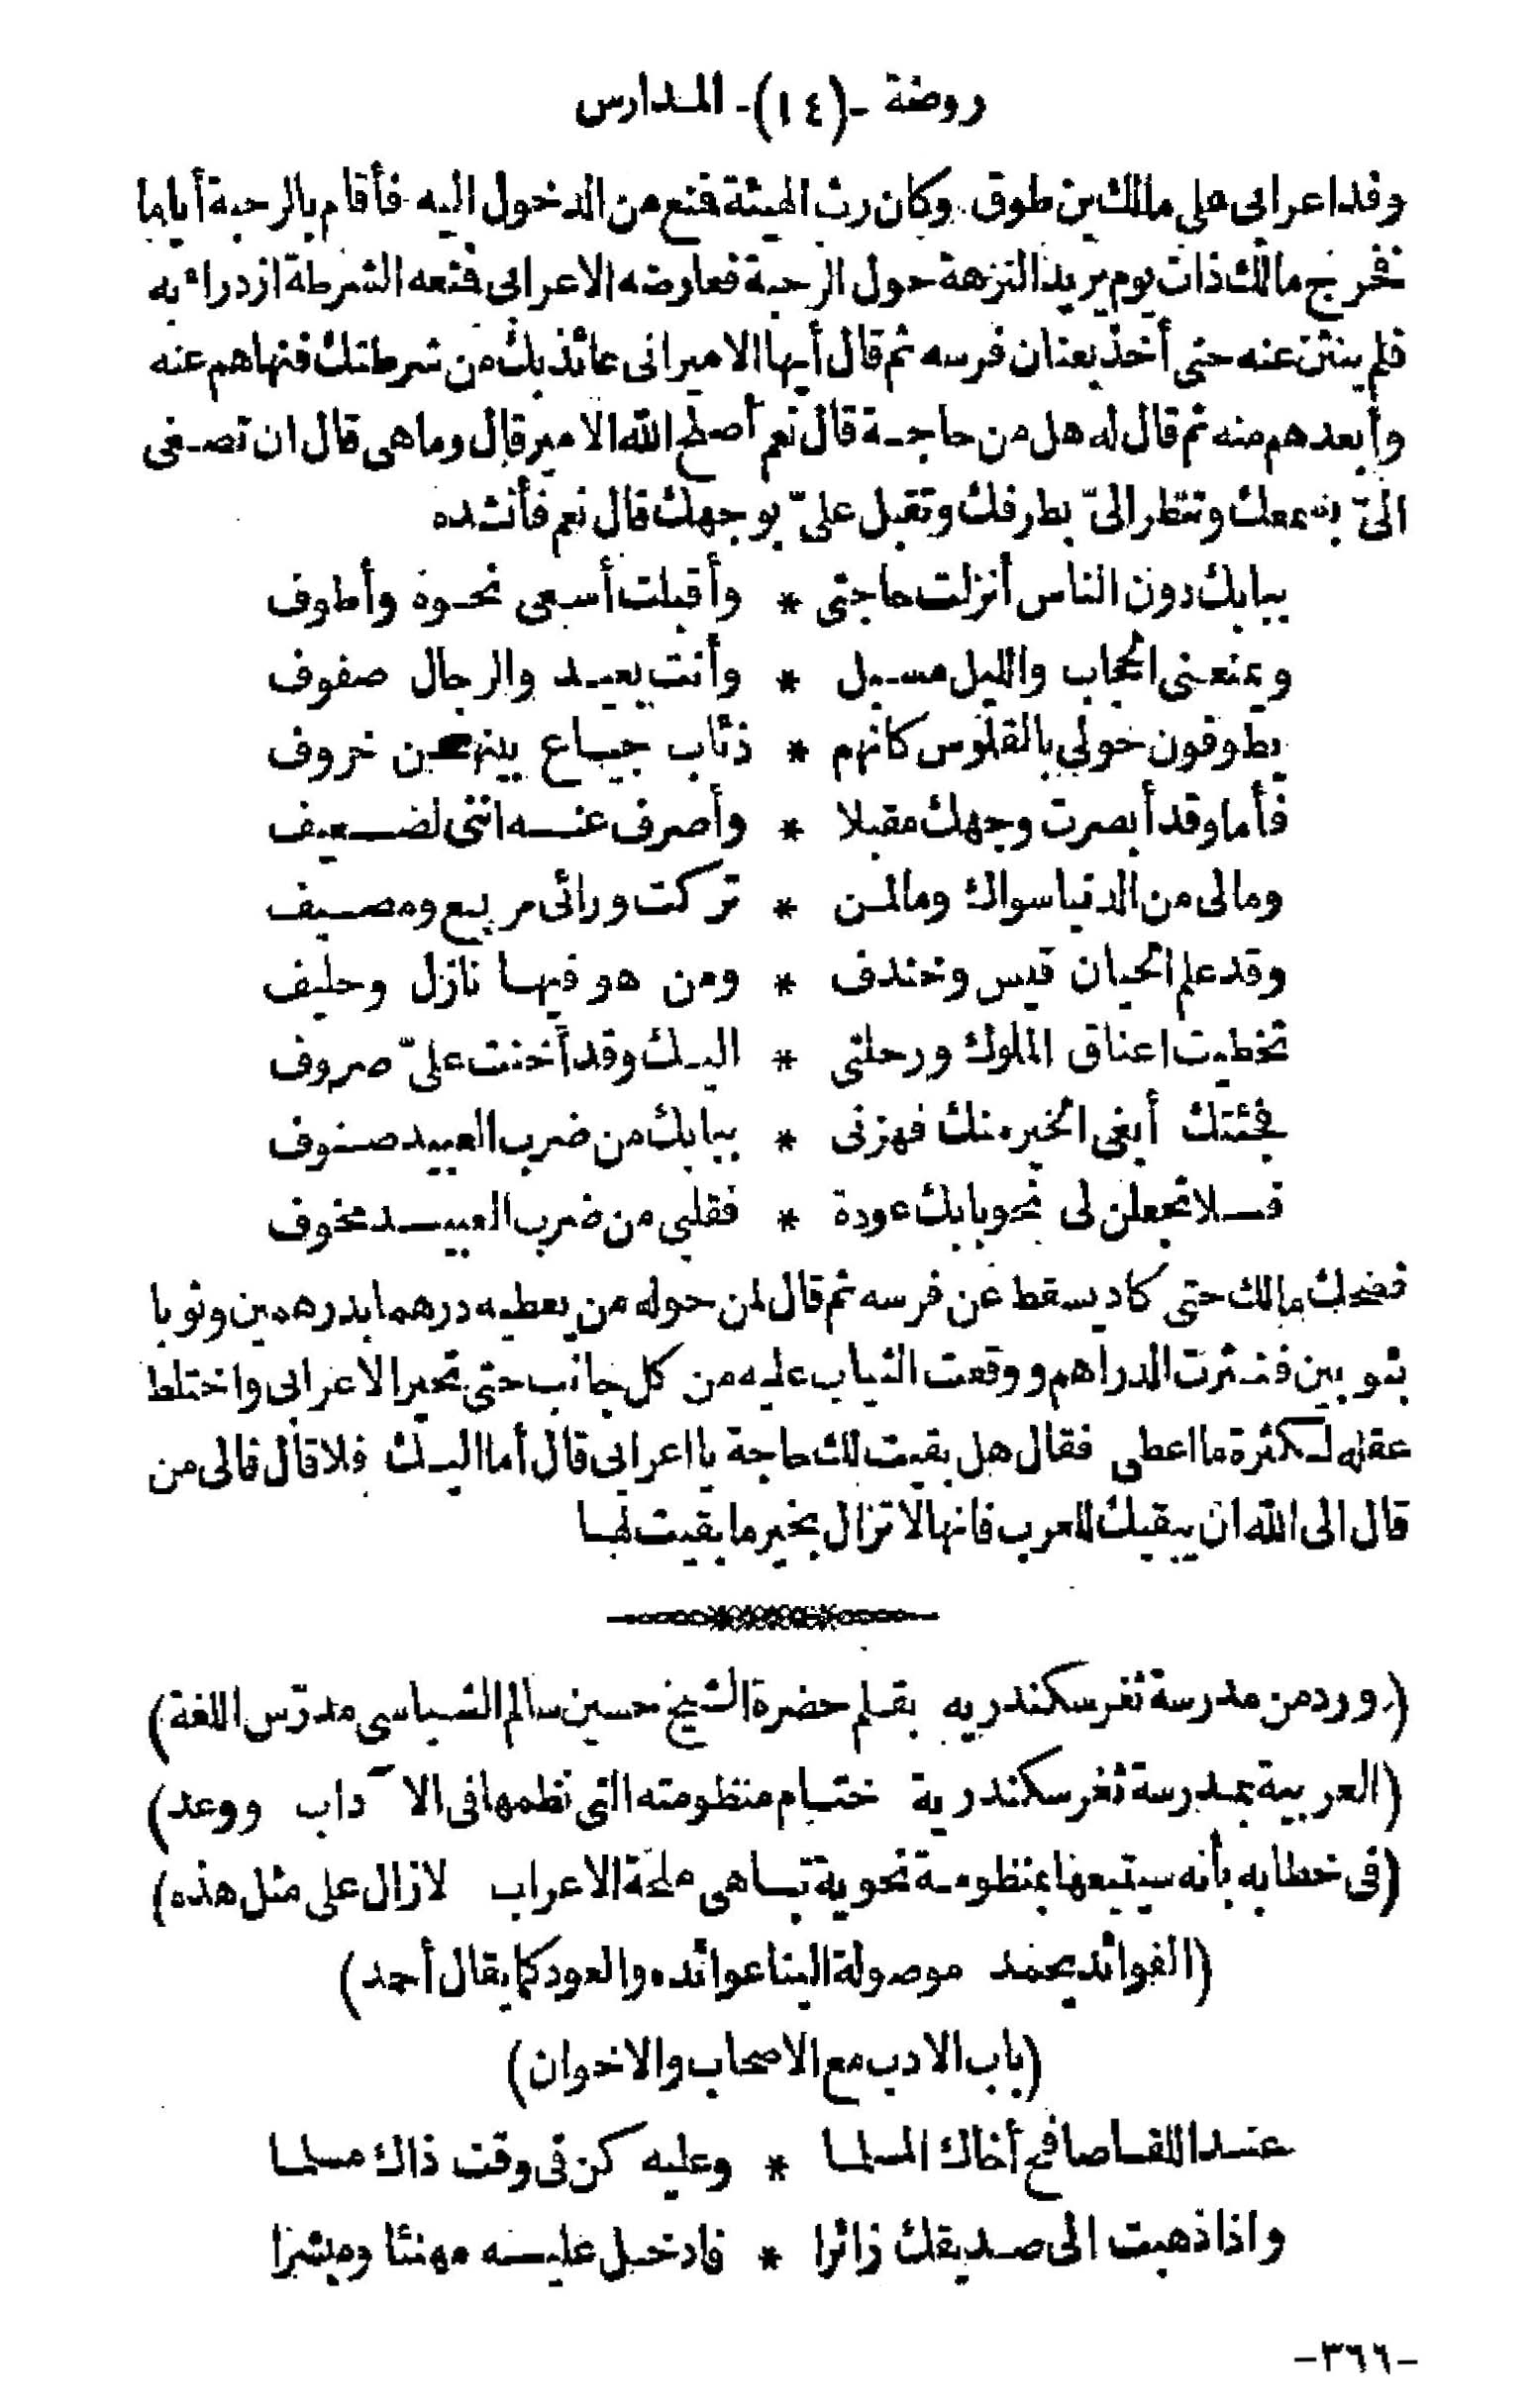 روضة -(١٤)- المدارس
وفد اعرابى على مالك بن طوق وكان رث الهيئة فمنع من الدخول اليه فأقام بالرحبة أياما
فخرج مالك ذات يوم يريد النزهة حول الرحبة فعارضه الاعرابى فمنعه الشرطة ازدراء به
فلم ينثن عنه حتى أخذ بعنان فرسه ثم قال أيها الامير انى عائذ بك من شرطتك فنهاهم عنه
وأبعدهم منه ثم قال له هل من حاجة قال نعم أصلح الله الامير قال وما هى قال ان تصغى
الىّ بسمعك وتنظر الىّ بطرفك وتقبل علىّ بوجهك قال نعم فأنشده
ببابك دون الناس أنزلت حاجتى * وأقبلت أسعى نحوه وأطوف
ويمنعنى الحجاب والليل مسبل * وأنت بعيد والرجال صفوف
يطوفون حولى بالقلوس كانهم * ذئاب جياع بينهن خروف
فأما وقد أبصرت وجهك مقبلا * وأصرف عنه اننى لضعيف
ومالى من الدنيا سواك ومالمن * تركت ورائى مربع ومصيف
وقد علم الحيان قيس وخندف * ومن هو فيها نازل وحليف
تخطيت اعناق الملوك ورحلتى * اليك وقد أخنت علىّ صروف
فجئتك أبغى الخير منك فهزنى * ببابك من ضرب العبيد صنوف
فلا تجعلن لى نحو بابك عودة * فقلبى من ضرب العبيد مخوف
فضحك مالك حتى كاد يسقط عن فرسه ثم قال لمن حوله من يعطيه درهما بدرهمين وثوبا
بثوبين فنثرت الدراهم ووقعت الثياب عليه من كل جانب حتى تحير الاعرابى واختلط
عقله لكثرة ما اعطى فقال هل بقيت لك حاجة يا اعرابى قال أما اليك فلا قال فالى من
قال الى الله ان يبقيك للعرب فانها لا تزال بخير ما بقيت لها
(ورد من مدرسة ثغر سكندريه بقلم حضرة الشيخ حسين سالم الشباسى مدرّس اللغة)
(العربية بمدرسة ثغر سكندرية ختام منظومته التى نظمها فى الآداب ووعد)
(فى خطابه بأنه سيتبعها بمنظومة نحوية تباهى ملحة الاعراب لازال على مثل هذه)
(الفوائد يحمد موصولة الينا عوائده والعود كما يقال أحمد)
(باب الادب مع الاصحاب والاخوان)
عند اللقا صافح أخاك المسلما * وعليه كن فى وقت ذاك مسلما
واذا ذهبت الى صديقك زائرا * فادخل عليه مهنئا ومبشرا
-٣٦٦-